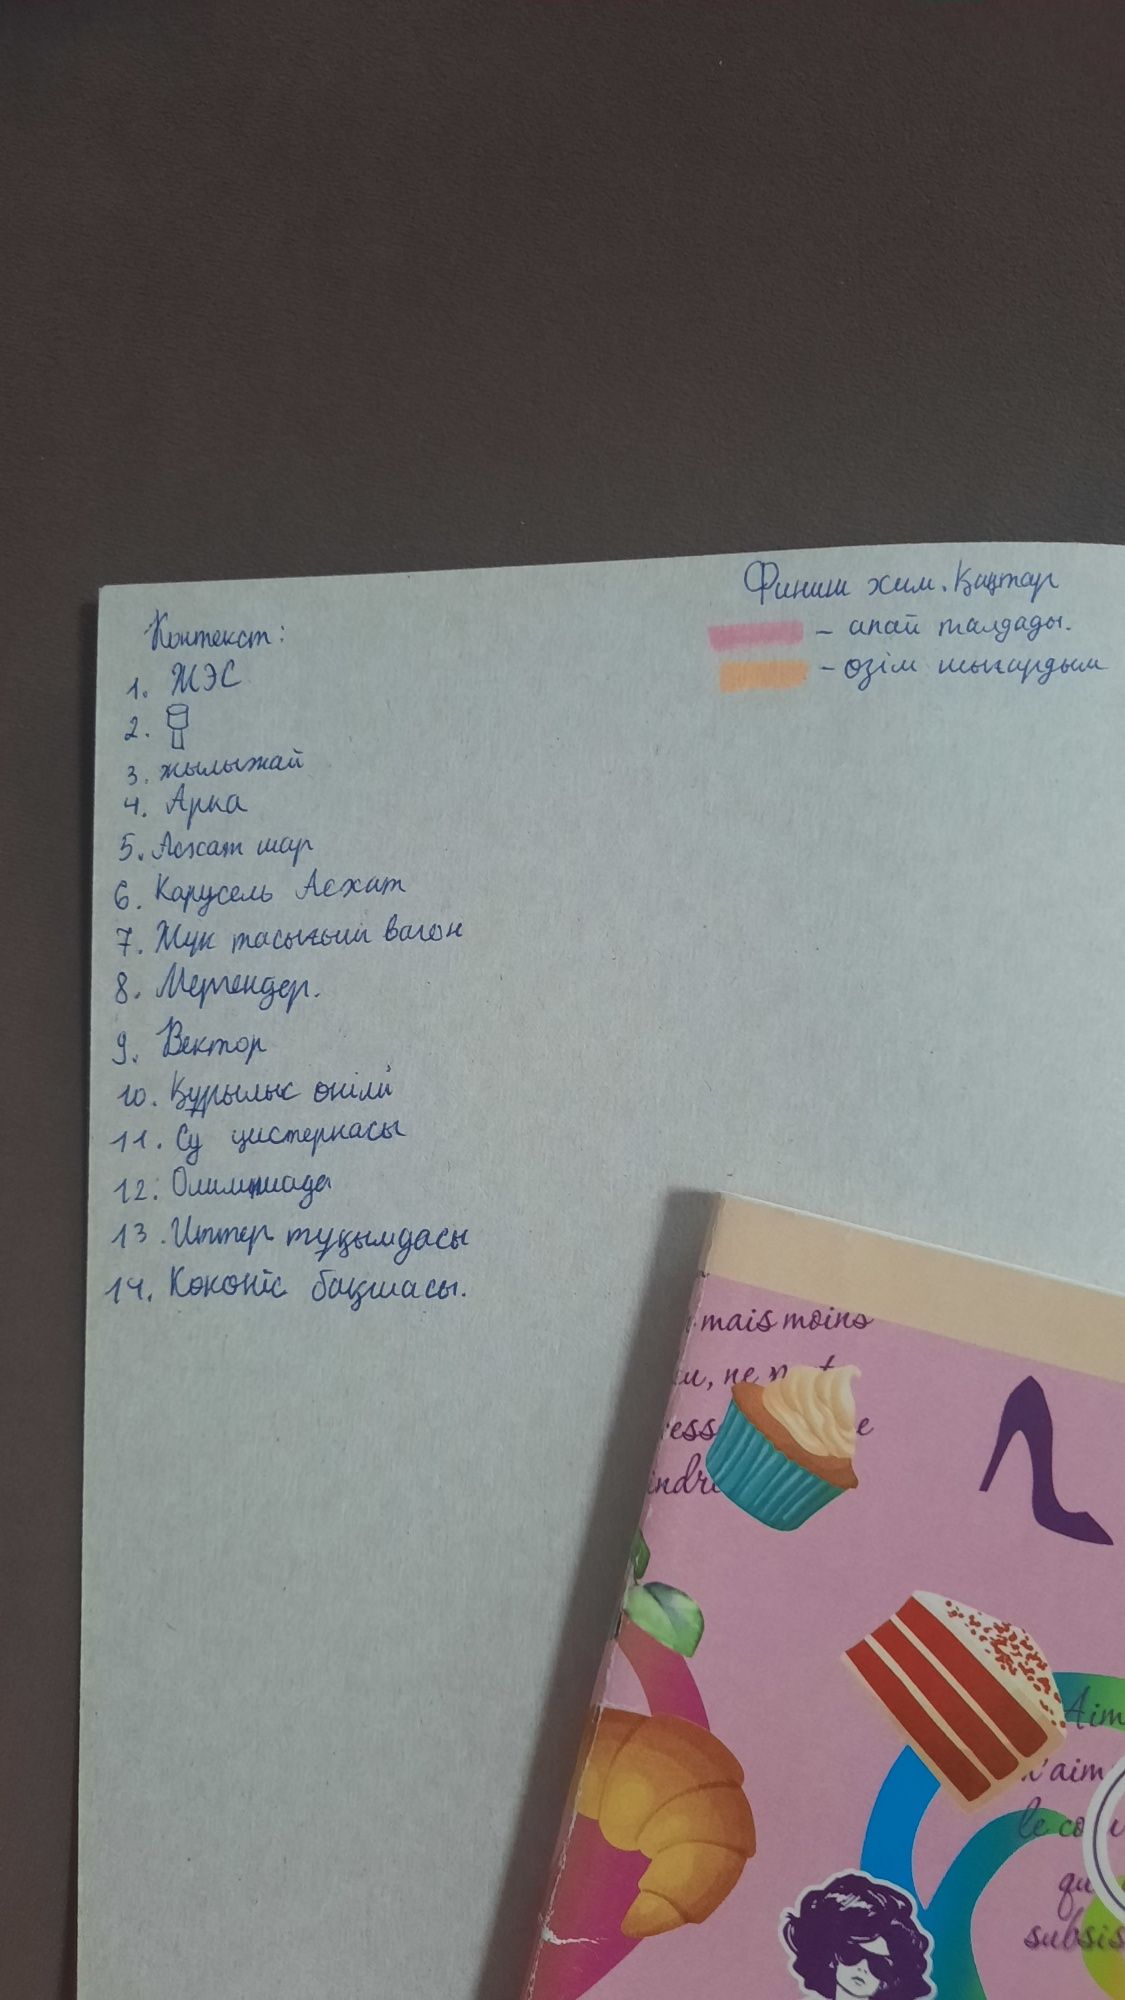 Финиш хим. Қаңтар
– апай талдады.
– өзім шығардым
Контекст:
1. ЖЭС
2.
3. жылыжай
4. Арка
5. Асхат шар
6. Карусель Асхат
7. Жүк тасығыш вагон
8. Мергендер.
9. Вектор
10. Құрылыс өнімі
11. Су цистернасы
12. Олимпиада
13. Иттер тұқымдасы
14. Көкөніс бақшасы.
mais moins
, ne
Aim
'aim
le co
qu
subsis